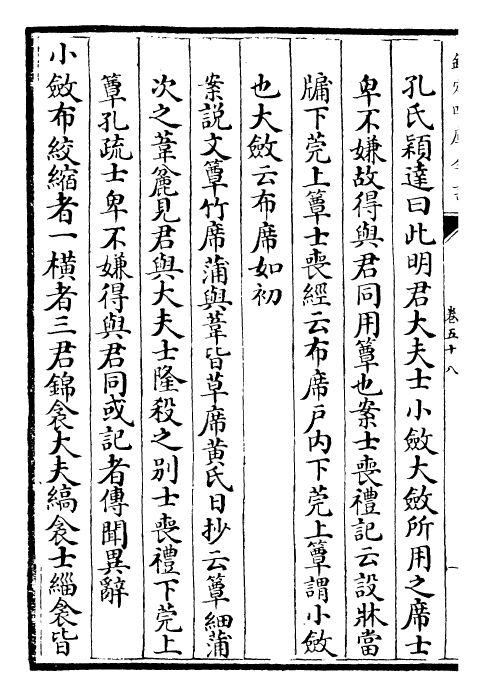 欽定四庫全書
卷五十八
孔氏穎達曰此明君大夫士小斂大斂所用之席士
卑不嫌故得與君同用簟也案士喪禮記云設牀當
牖下莞上簟士喪經云布席戶内下莞上簟謂小斂
也大斂云布席如初
案説文簟竹席蒲與葦皆草席黄氏日抄云簟細蒲
次之葦麄見君與大夫士隆殺之别士喪禮下莞上
簟孔疏士卑不嫌得與君同或記者傳聞異辭
小斂布絞縮者一橫者三君錦衾大夫縞衾士緇衾皆